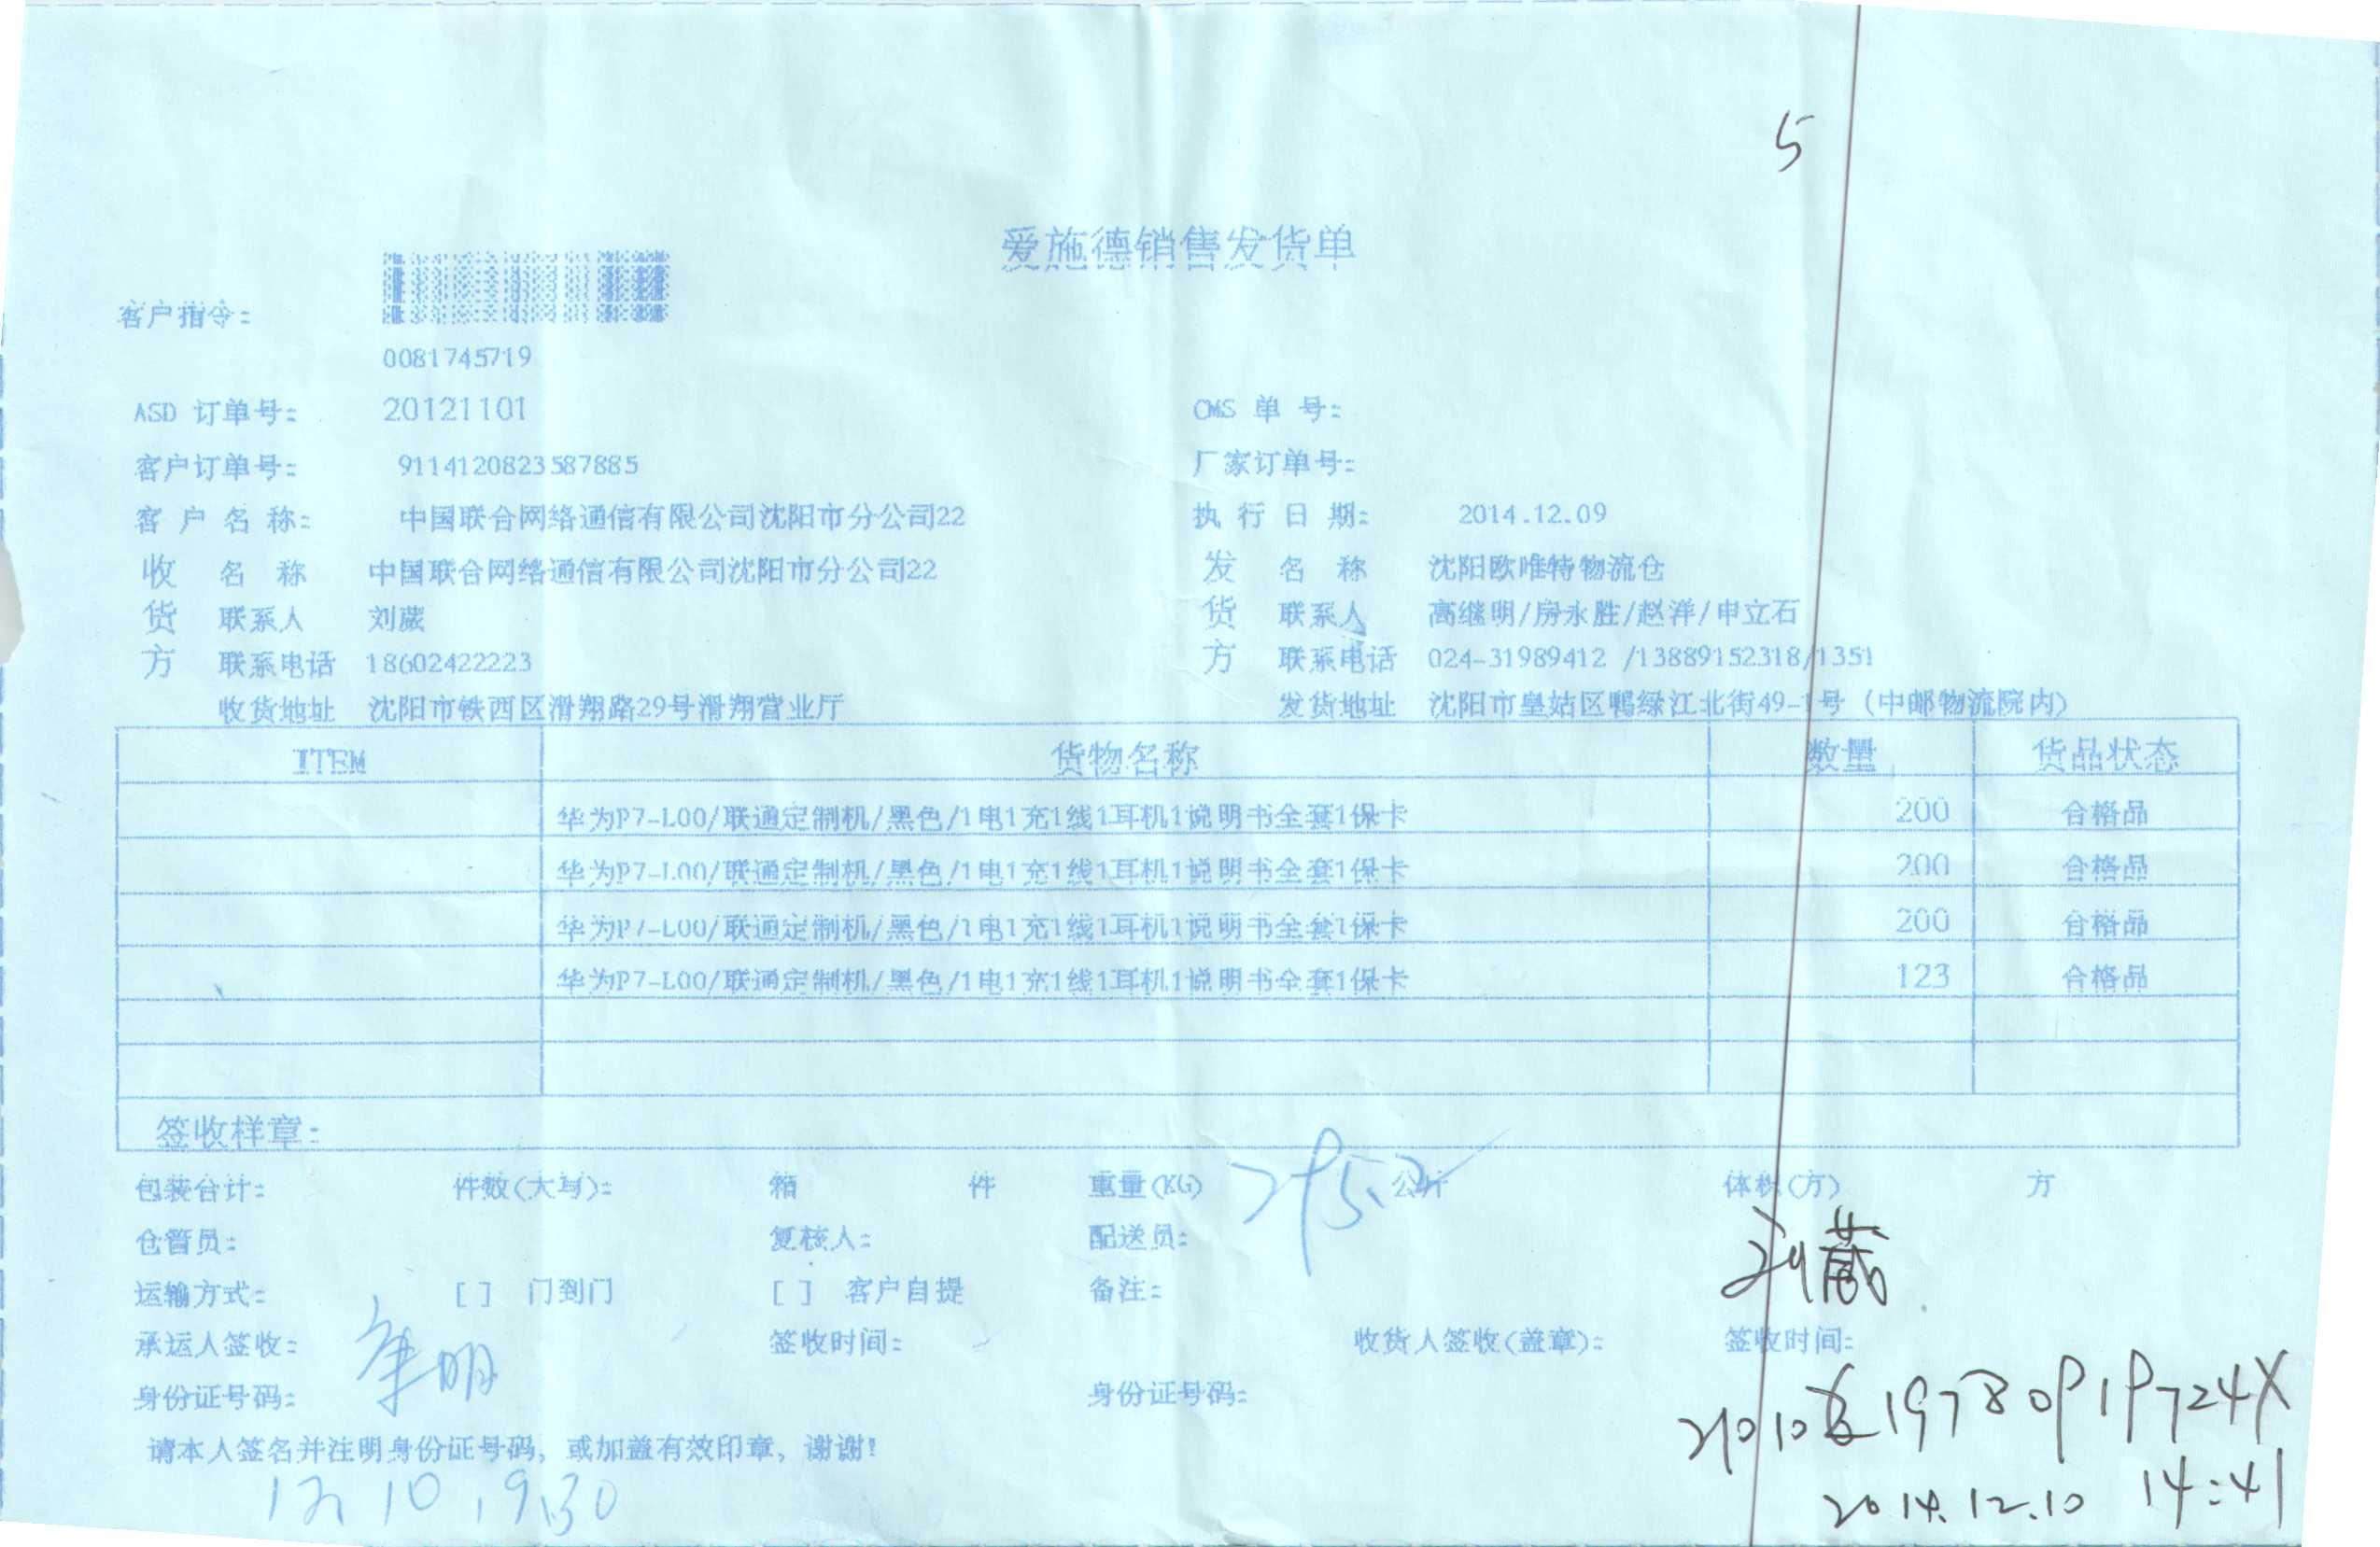 5
爱施德销售发货单
客户指令:
0081745719
ASD 订单号: 20121101 OMS 单 号:
客户订单号: 9114120823587885 厂家订单号:
客 户 名 称: 中国联合网络通信有限公司沈阳市分公司22 执 行 日 期: 2014.12.09
收 名 称 中国联合网络通信有限公司沈阳市分公司22 发 名 称 沈阳欧唯特物流仓
货 联系人 刘葳 货 联系人 高继明/房永胜/赵洋/申立石
方 联系电话 18602422223 方 联系电话 024-31989412 /13889152318/1351
收货地址 沈阳市铁西区滑翔路29号滑翔营业厅 发货地址 沈阳市皇姑区鸭绿江北街49-1号 (中邮物流院内)
ITEM 货物名称 数量 货品状态
华为P7-L00/联通定制机/黑色/1电1充1线1耳机1说明书全套1保卡 200 合格品
华为P7-L00/联通定制机/黑色/1电1充1线1耳机1说明书全套1保卡 200 合格品
华为P7-L00/联通定制机/黑色/1电1充1线1耳机1说明书全套1保卡 200 合格品
华为P7-L00/联通定制机/黑色/1电1充1线1耳机1说明书全套1保卡 123 合格品
签收样章:
包装合计: 件数(大写): 箱 件 重量(KG) 295.2 公斤 体积(方) 方
仓管员: 复核人: 配送员:
刘葳
运输方式: [ ] 门到门 [ ] 客户自提 备注:
承运人签收: 签收时间: 收货人签收(盖章): 签收时间:
身份证号码: 身份证号码:
19780919724X
请本人签名并注明身份证号码, 或加盖有效印章, 谢谢!
12, 10, 9:30
2014.12.10 14:41